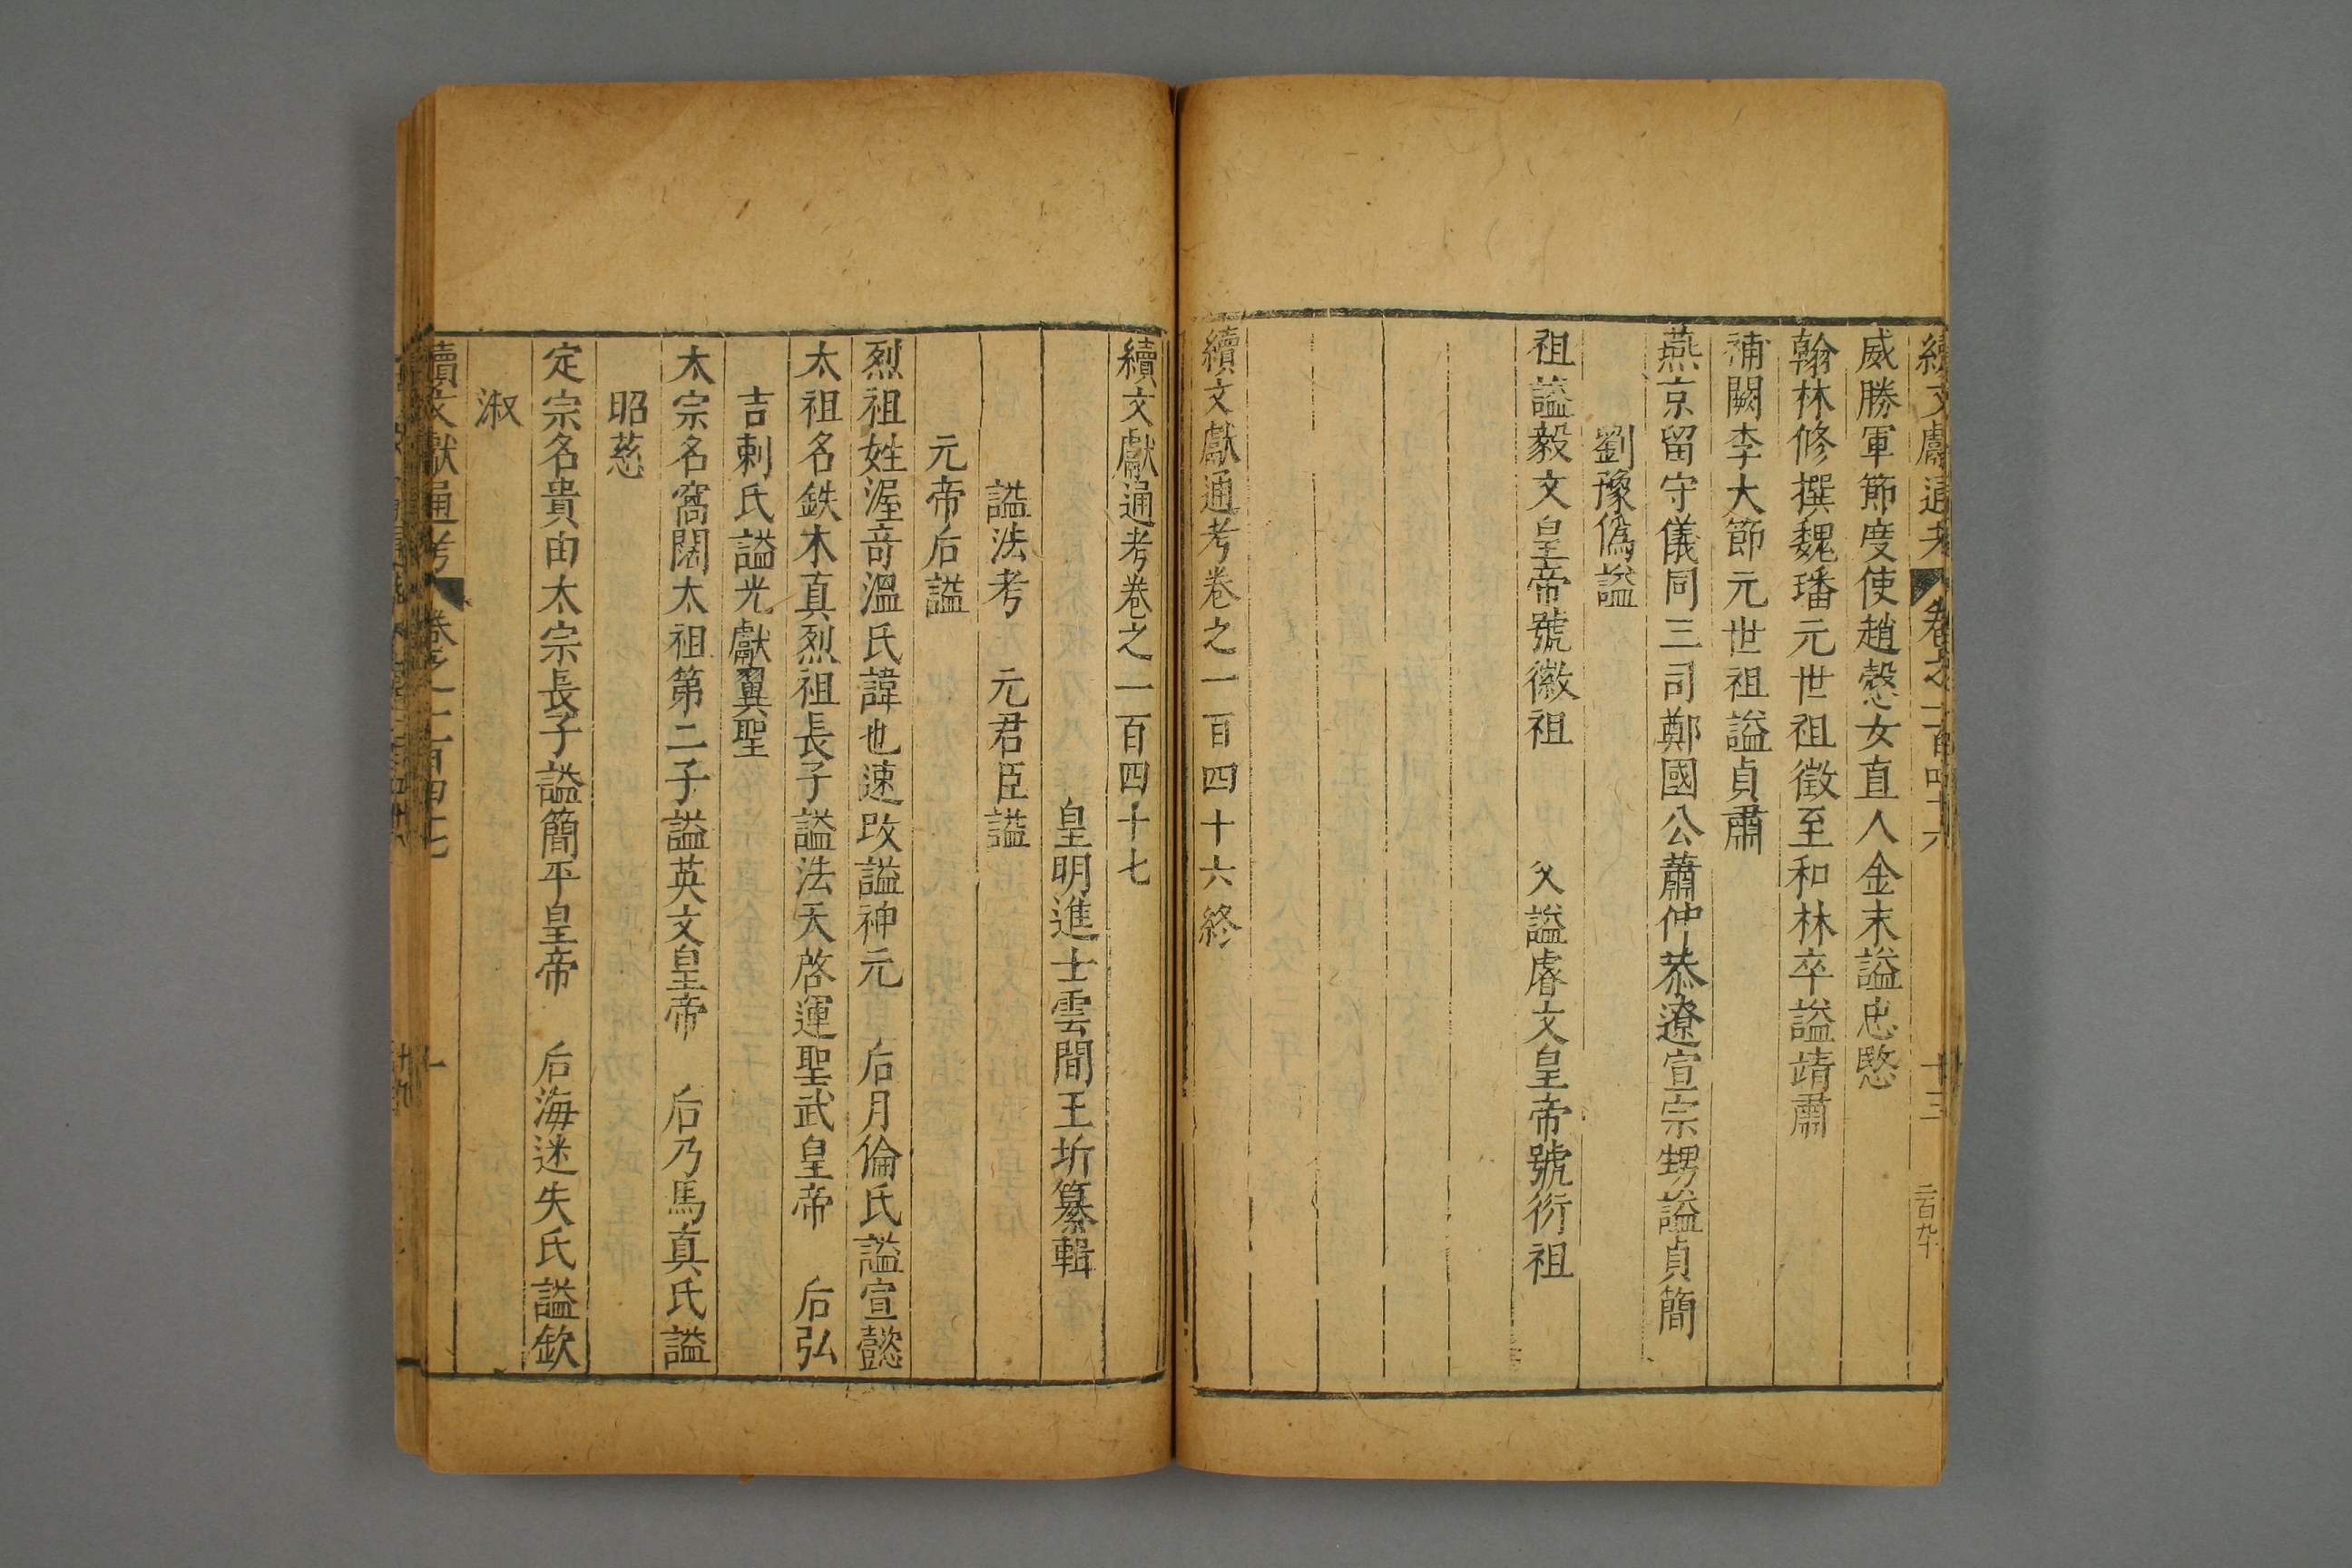 續文獻通考 卷之一百四十六 十三 二百九十
威勝軍節度使趙慤女直人金末謚忠愍
翰林修撰魏璠元世祖徵至和林卒謚靖肅
補闕李大節元世祖謚貞肅
燕京留守儀同三司鄭國公蕭仲恭遼宣宗甥謚貞簡
劉豫僞謚
祖謚毅文皇帝號徽祖 父謚睿文皇帝號衍祖
續文獻通考卷之一百四十六終
續文獻通考卷之一百四十七
皇明進士雲間王圻纂輯
謚法考 元君臣謚
元帝后謚
烈祖姓渥奇溫氏諱也速改謚神元 后月倫氏謚宣懿
太祖名鉄木真烈祖長子謚法天啓運聖武皇帝 后弘
吉剌氏謚光獻翼聖
太宗名窩闊太祖第二子謚英文皇帝 后乃馬真氏謚
昭慈
定宗名貴由太宗長子謚簡平皇帝 后海迷失氏謚欽
淑
續文獻通考 卷之一百四十七 一